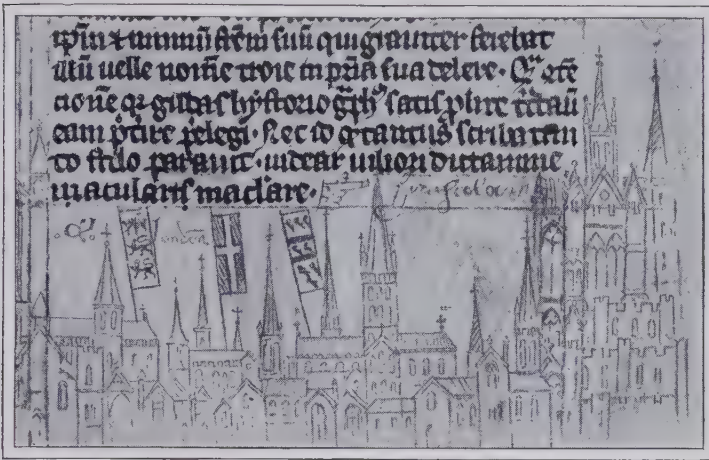 ip̄m ⁊ nimniū frēm suū qui grauiter ferebat
illū uelle nomē troie in pr̄ia sua delere. Qr̄ ctē
cionē qr gildas hystoriogͣphꝰ satis plixe tͣctau
eam p̄tire p̄elegi. Nec id q tantus scriba tan
to stilo parauit. uidear uiliori dictamine
maclare.